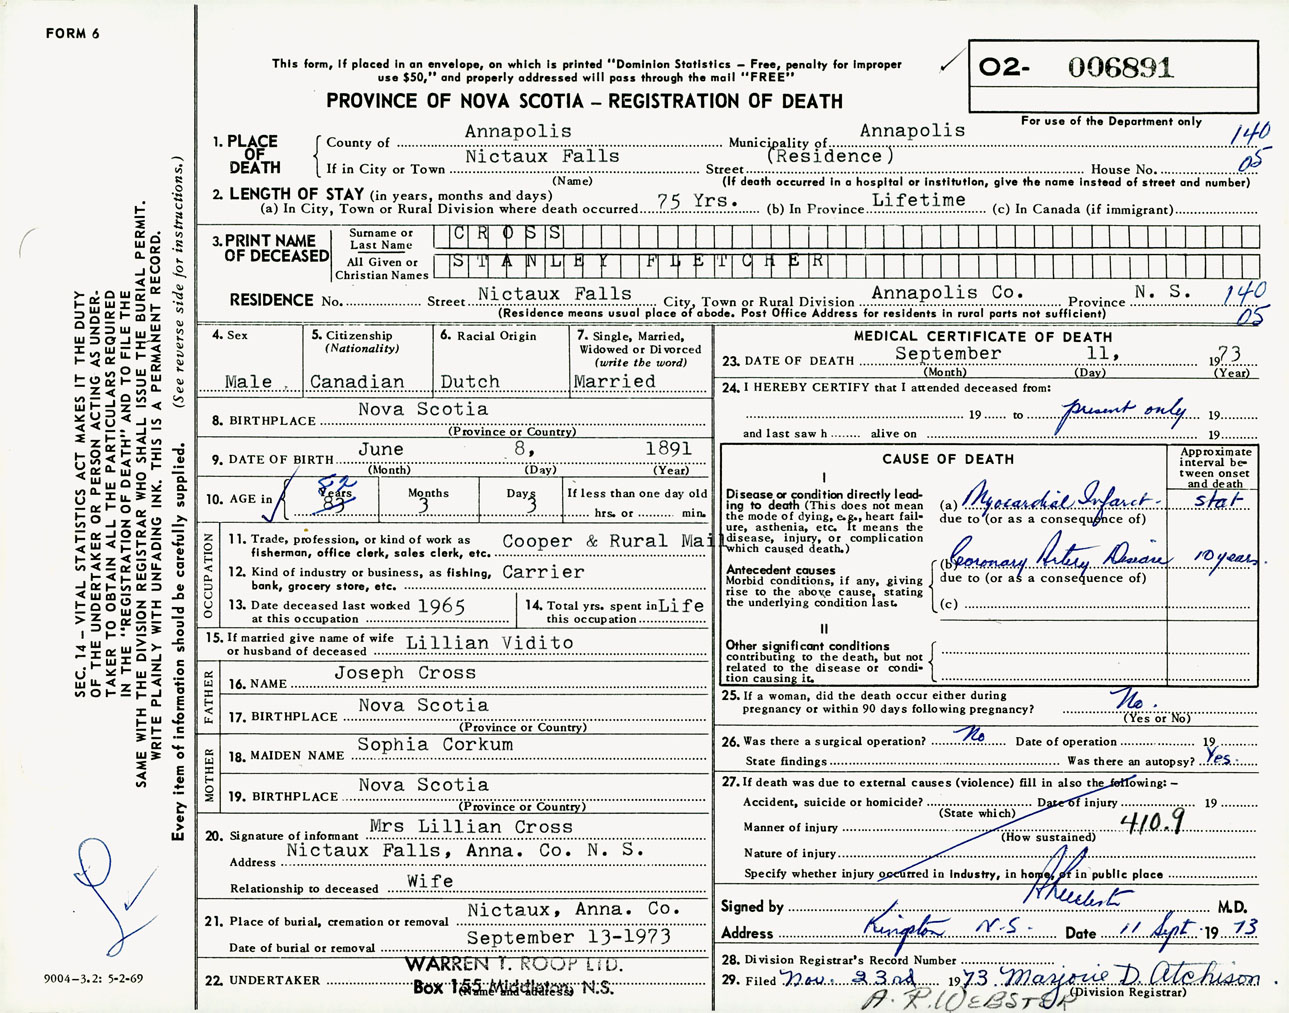 FORM 6
This form, if placed in an envelope, on which is printed "Dominion Statistics – Free, penalty for improper
use $50," and properly addressed will pass through the mail "FREE"
PROVINCE OF NOVA SCOTIA – REGISTRATION OF DEATH
O2- 006891
For use of the Department only
1. PLACE OF DEATH
County of Annapolis Municipality of Annapolis 140
If in City or Town Nictaux Falls Street (Residence) House No. 05
(Name) (If death occurred in a hospital or institution, give the name instead of street and number)
2. LENGTH OF STAY (in years, months and days)
(a) In City, Town or Rural Division where death occurred 75 Yrs. (b) In Province Lifetime (c) In Canada (if immigrant)
3. PRINT NAME OF DECEASED
Surname or Last Name CROSS
All Given or Christian Names STANLEY FLETCHER
RESIDENCE No. Street Nictaux Falls City, Town or Rural Division Annapolis Co. Province N. S. 140
(Residence means usual place of abode. Post Office Address for residents in rural parts not sufficient) 05
4. Sex
Male
5. Citizenship
(Nationality)
Canadian
6. Racial Origin
Dutch
7. Single, Married,
Widowed or Divorced
(write the word)
Married
8. BIRTHPLACE Nova Scotia
(Province or Country)
9. DATE OF BIRTH June 8, 1891
(Month) (Day) (Year)
10. AGE in Years Months Days If less than one day old
82 83 3 3 hrs. or min.
OCCUPATION
11. Trade, profession, or kind of work as
fisherman, office clerk, sales clerk, etc. Cooper & Rural Mail
12. Kind of industry or business, as fishing, Carrier
bank, grocery store, etc.
13. Date deceased last worked 1965
at this occupation
14. Total yrs. spent in Life
this occupation
15. If married give name of wife
or husband of deceased Lillian Vidito
FATHER
16. NAME Joseph Cross
17. BIRTHPLACE Nova Scotia
(Province or Country)
MOTHER
18. MAIDEN NAME Sophia Corkum
19. BIRTHPLACE Nova Scotia
(Province or Country)
20. Signature of informant Mrs Lillian Cross
Address Nictaux Falls, Anna. Co. N. S.
Relationship to deceased Wife
21. Place of burial, cremation or removal Nictaux, Anna. Co.
Date of burial or removal September 13-1973
22. UNDERTAKER WARREN T. ROOP LTD.
Box 155 Middleton, N.S.
(Name and address)
MEDICAL CERTIFICATE OF DEATH
23. DATE OF DEATH September 11, 1973
(Month) (Day) (Year)
24. I HEREBY CERTIFY that I attended deceased from:
19 to present only 19
and last saw h alive on 19
CAUSE OF DEATH
Approximate interval between onset and death
I
Disease or condition directly lead-
ing to death (This does not mean
the mode of dying, e.g., heart fail-
ure, asthenia, etc. It means the
disease, injury, or complication
which caused death.)
(a) Myocardial Infarct - stat
due to (or as a consequence of)
Antecedent causes
Morbid conditions, if any, giving
rise to the above cause, stating
the underlying condition last.
(b) Coronary Artery Disease 10 years.
due to (or as a consequence of)
(c)
II
Other significant conditions
contributing to the death, but not
related to the disease or condi-
tion causing it.
25. If a woman, did the death occur either during
pregnancy or within 90 days following pregnancy? No.
(Yes or No)
26. Was there a surgical operation? No Date of operation 19
State findings Was there an autopsy? Yes.
27. If death was due to external causes (violence) fill in also the following: –
Accident, suicide or homicide? Date of injury 19
(State which)
Manner of injury 410.9
(How sustained)
Nature of injury
Specify whether injury occurred in industry, in home, or in public place
Signed by M.D.
Address Kingston N.S. Date 11 Sept. 1973
28. Division Registrar's Record Number
29. Filed Nov. 23rd 1973 Marjorie D. Atchison
(Division Registrar)
A. R. WEBSTER
SEC. 14 – VITAL STATISTICS ACT MAKES IT THE DUTY
OF THE UNDERTAKER OR PERSON ACTING AS UNDER-
TAKER TO OBTAIN ALL THE PARTICULARS REQUIRED
IN THE "REGISTRATION OF DEATH" AND TO FILE THE
SAME WITH THE DIVISION REGISTRAR WHO SHALL ISSUE THE BURIAL PERMIT.
WRITE PLAINLY WITH UNFADING INK. THIS IS A PERMANENT RECORD.
Every item of information should be carefully supplied. (See reverse side for instructions.)
9004-3.2: 5-2-69